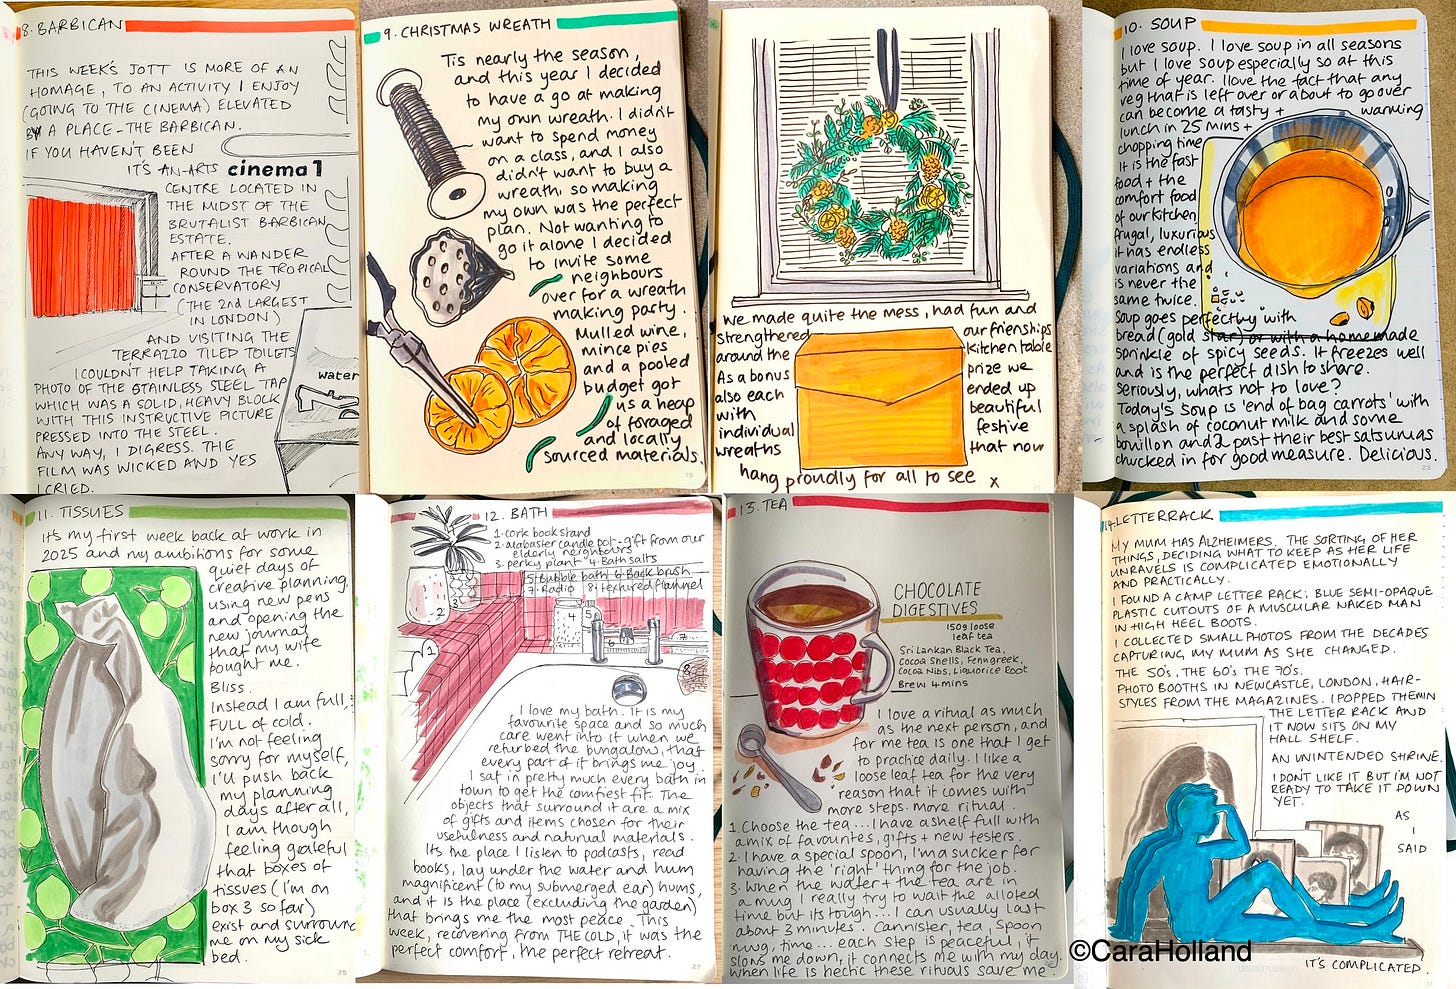 8. BARBICAN
THIS WEEK'S JOTT IS MORE OF AN
HOMAGE, TO AN ACTIVITY I ENJOY
(GOING TO THE CINEMA) ELEVATED
BY A PLACE - THE BARBICAN.
IF YOU HAVEN'T BEEN
IT'S AN ARTS
cinema 1
CENTRE LOCATED IN
THE MIDST OF THE
BRUTALIST BARBICAN
ESTATE.
AFTER A WANDER
ROUND THE TROPICAL
CONSERVATORY
(THE 2nd LARGEST
IN LONDON)
AND VISITING THE
TERRAZZO TILED TOILETS
I COULDN'T HELP TAKING A
PHOTO OF THE STAINLESS STEEL TAP
WHICH WAS A SOLID, HEAVY BLOCK
WITH THIS INSTRUCTIVE PICTURE
PRESSED INTO THE STEEL.
ANY WAY, I DIGRESS. THE
FILM WAS WICKED AND YES
I CRIED.
water
9. CHRISTMAS WREATH
Tis nearly the season,
and this year I decided
to have a go at making
my own wreath. I didn't
want to spend money
on a class, and I also
didn't want to buy a
wreath so making
my own was the perfect
plan. Not wanting to
go it alone I decided
to invite some
neighbours
over for a wreath
making party.
Mulled wine,
mince pies
and a pooled
budget got
us a heap
of foraged
and locally
sourced materials.
19
We made quite the mess, had fun and
strengthened our frienships
around the kitchen table
As a bonus prize we
also each ended up
with beautiful
individual festive
wreaths that now
hang proudly for all to see x
10. SOUP
I love soup. I love soup in all seasons
but I love soup especially so at this
time of year. I love the fact that any
veg that is left over or about to go over
can become a tasty + warming
lunch in 25 mins +
chopping time
It is the fast
food + the
comfort food
of our kitchen
frugal, luxurious
it has endless
variations and
is never the
same twice.
Soup goes perfectly with
bread (gold star for with a homemade
sprinkle of spicy seeds. It freezes well
and is the perfect dish to share.
Seriously, whats not to love?
Today's soup is 'end of bag carrots' with
a splash of coconut milk and some
bouillon and 2 past their best satsumas
chucked in for good measure. Delicious.
23
11. TISSUES
It's my first week back at work in
2025 and my ambitions for some
quiet days of
creative planning,
using new pens
and opening the
new journal
that my wife
bought me.
Bliss.
Instead I am full,
FULL of cold.
I'm not feeling
sorry for myself,
I'll push back
my planning
days after all,
I am though
feeling grateful
that boxes of
tissues (I'm on
box 3 so far)
exist and surround
me on my sick
bed.
25
12. BATH
1. Cork book stand
2. alabaster candle pot - gift from our
elderly neighbours
3. perky plant 4. Bath salts
5. Bubble bath 6. Back brush
7. Radio 8. Textured flannel
I love my bath. It is my
favourite space and so much
care went into it when we
refurbed the bungalow, that
every part of it brings me joy.
I sat in pretty much every bath in
town to get the comfiest fit. The
objects that surround it are a mix
of gifts and items chosen for their
usefulness and natural materials.
Its the place I listen to podcasts, read
books, lay under the water and hum
magnificent (to my submerged ear) hums,
and it is the place (excluding the garden)
that brings me the most peace. This
week, recovering from THE COLD, it was the
perfect comfort, the perfect retreat.
27
13. TEA
CHOCOLATE
DIGESTIVES
150g loose
leaf tea
Sri Lankan Black Tea,
Cocoa Shells, Fenugreek,
Cocoa Nibs, Liquorice Root
Brew 4 mins
I love a ritual as much
as the next person, and
for me tea is one that I get
to practice daily. I like a
loose leaf tea for the very
reason that it comes with
more steps. more ritual.
1. Choose the tea... I have a shelf full with
a mix of favourites, gifts + new testers.
2. I have a special spoon, I'm a sucker for
having the 'right' thing for the job.
3. when the water + the tea are in
a mug I really try to wait the alloted
time but its tough... I can usually last
about 3 minutes. Cannister, tea, spoon
mug, time... each step is peaceful, it
slows me down, it connects me with my day.
When life is hectic these rituals save me.
14. LETTERRACK
MY MUM HAS ALZHEIMERS. THE SORTING OF HER
THINGS, DECIDING WHAT TO KEEP AS HER LIFE
UNRAVELS IS COMPLICATED EMOTIONALLY
AND PRACTICALLY.
I FOUND A CAMP LETTER RACK: BLUE SEMI-OPAQUE
PLASTIC CUTOUTS OF A MUSCULAR NAKED MAN
IN HIGH HEEL BOOTS.
I COLLECTED SMALL PHOTOS FROM THE DECADES
CAPTURING MY MUM AS SHE CHANGED.
THE 50's. THE 60's THE 70's.
PHOTO BOOTHS IN NEWCASTLE, LONDON. HAIR-
STYLES FROM THE MAGAZINES. I POPPED THEM IN
THE LETTER RACK AND
IT NOW SITS ON MY
HALL SHELF.
AN UNINTENDED SHRINE.
I DON'T LIKE IT BUT I'M NOT
READY TO TAKE IT DOWN
YET.
AS
I
SAID
IT'S COMPLICATED.
31
©CaraHolland